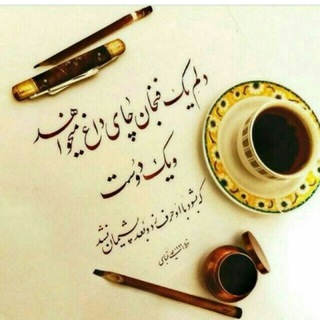 دلم یک فنجان چای داغ میخواهد
و یک دوست
که بشود با او حرف زد و بعد پشیمان نشد